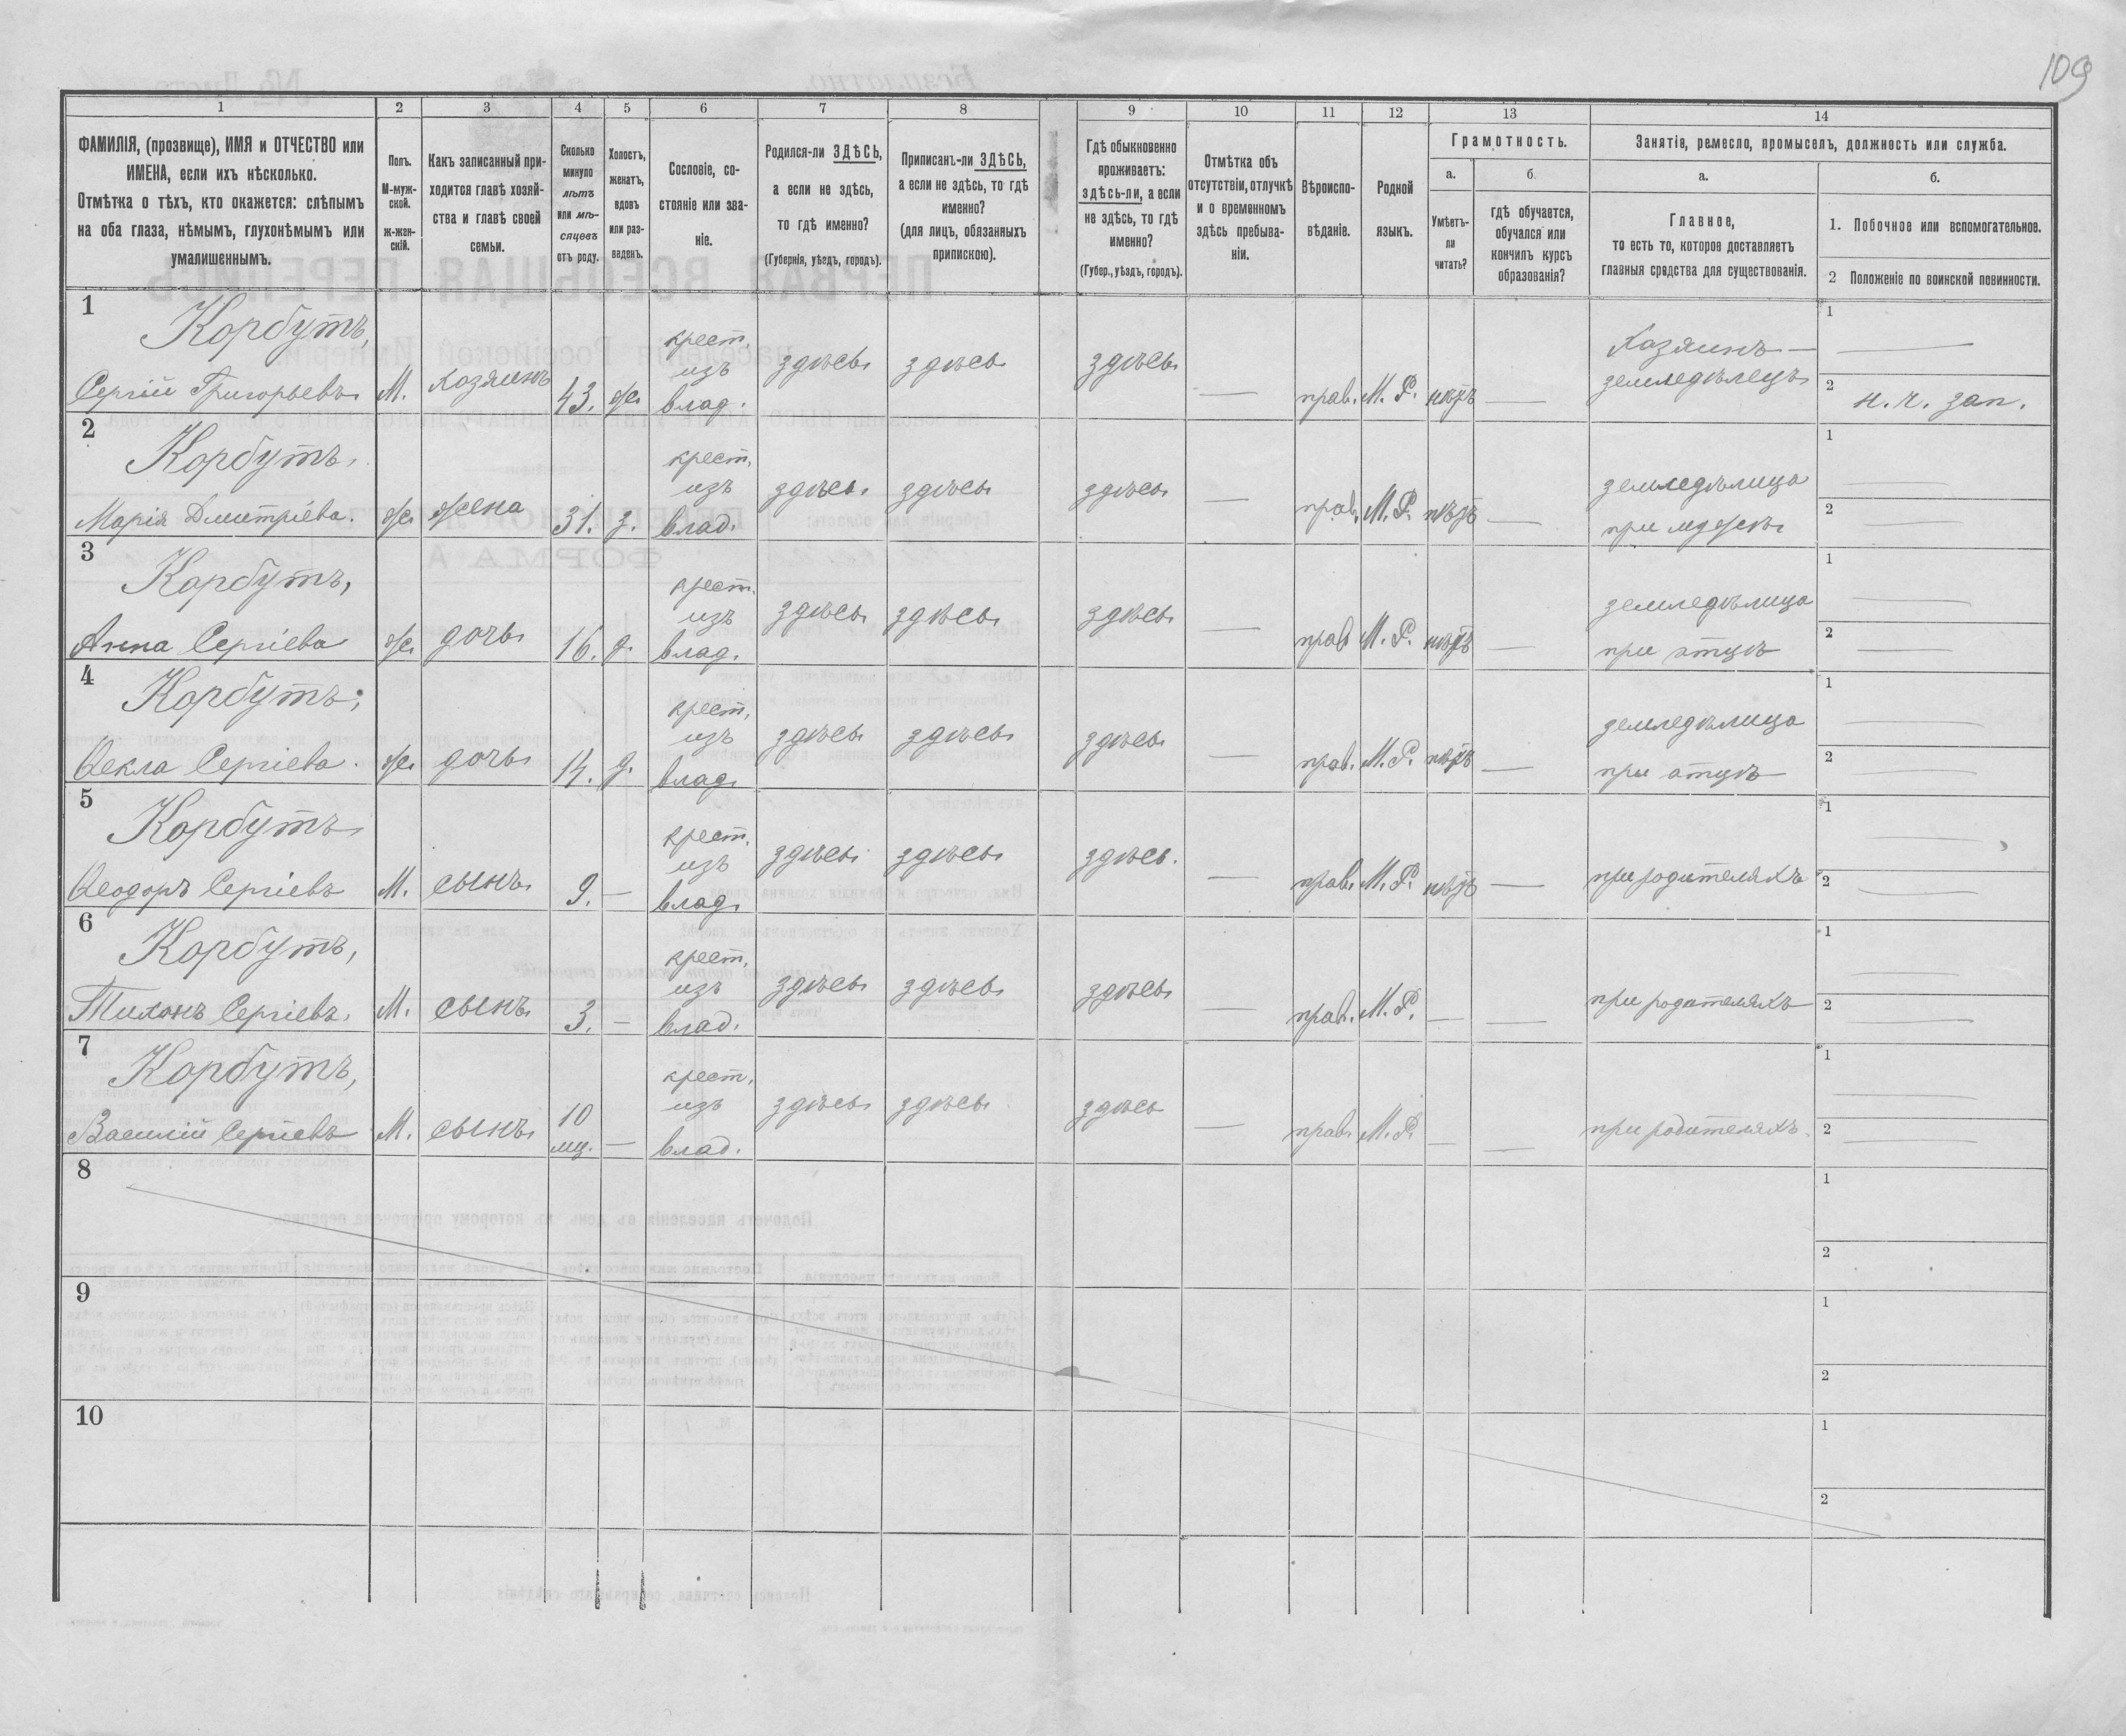 109
1 2 3 4 5 6 7 8 9 10 11 12 13 14
ФАМИЛІЯ, (прозвище), ИМЯ и ОТЧЕСТВО или
ИМЕНА, если ихъ нѣсколько.
Отмѣтка о тѣхъ, кто окажется: слѣпымъ
на оба глаза, нѣмымъ, глухонѣмымъ или
умалишеннымъ.
Полъ.
М-муж-
ской.
ж-жен-
скій.
Какъ записанный при-
ходится главѣ хозяй-
ства и главѣ своей
семьи.
Сколько
минуло
лѣтъ
или мѣ-
сяцевъ
отъ роду.
Холостъ,
женатъ,
вдовъ
или раз-
веденъ.
Сословіе, со-
стояніе или зва-
ніе.
Родился-ли ЗДѢСЬ,
а если не здѣсь,
то гдѣ именно?
(Губернія, уѣздъ, городъ).
Приписанъ-ли ЗДѢСЬ,
а если не здѣсь, то гдѣ
именно?
(для лицъ, обязанныхъ
припискою).
Гдѣ обыкновенно
проживаетъ:
здѣсь-ли, а если
не здѣсь, то гдѣ
именно?
(Губер., уѣздъ, городъ).
Отмѣтка объ
отсутствіи, отлучкѣ
и о временномъ
здѣсь пребыва-
ніи.
Вѣроиспо-
вѣданіе.
Родной
языкъ.
Грамотность.
а.
Умѣетъ-
ли
читать?
б.
гдѣ обучается,
обучался или
кончилъ курсъ
образованія?
Занятіе, ремесло, промыселъ, должность или служба.
а.
Главное,
то есть то, которое доставляетъ
главныя средства для существованія.
б.
1. Побочное или вспомогательное.
2 Положеніе по воинской повинности.
1
Корбутъ,
Сергій Григорьевъ М. хозяинъ 43. ж. крест. изъ влад. здѣсь здѣсь здѣсь — прав. М. Р. нѣтъ — Хозяинъ — земледѣлецъ 1 — 2 н. ч. зап.
2
Корбутъ,
Марія Дмитріева. ж. жена 31. з. крест. изъ влад. здѣсь здѣсь здѣсь — прав. М. Р. нѣтъ — земледѣлица при мужѣ 1 — 2 —
3
Корбутъ,
Анна Сергіева ж. дочь 16. д. крест. изъ влад. здѣсь здѣсь здѣсь — прав М. Р. нѣтъ — земледѣлица при отцѣ 1 — 2 —
4
Корбутъ,
Ѳекла Сергіева. ж. дочь 14. д. крест. изъ влад. здѣсь здѣсь здѣсь — прав. М. Р. нѣтъ — земледѣлица при отцѣ 1 — 2 —
5
Корбутъ
Ѳеодоръ Сергіевъ М. сынъ 9. — крест. изъ влад. здѣсь здѣсь здѣсь — прав. М. Р. нѣтъ — при родителяхъ 1 — 2 —
6
Корбутъ,
Тихонъ Сергіевъ. М. сынъ 3. — крест. изъ влад. здѣсь здѣсь здѣсь — прав. М. Р. — — при родителяхъ 1 — 2 —
7
Корбутъ,
Василій Сергіевъ М. сынъ 10 мц. — крест. изъ влад. здѣсь здѣсь здѣсь — прав. М. Р. — — при родителяхъ 1 — 2 —
8 1 2
9 1 2
10 1 2